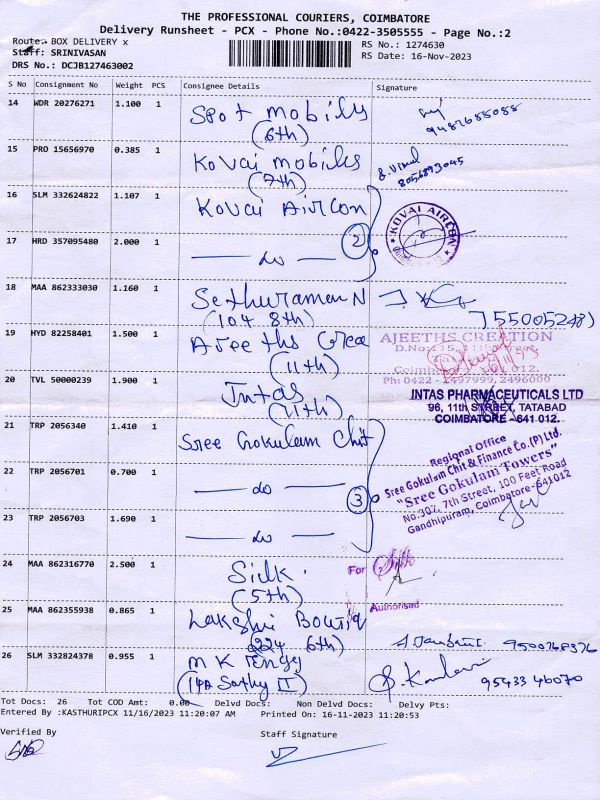 THE PROFESSIONAL COURIERS, COIMBATORE
Delivery Runsheet - PCX - Phone No.:0422-3505555 - Page No.:2
Route: BOX DELIVERY x
RS No.: 1274630
Staff: SRINIVASAN
RS Date: 16-Nov-2023
DRS No.: DCJB127463002
S No Consignment No Weight PCS Consignee Details Signature
14 WDR 20276271 1.100 1 Spot mobiles
(6th)
15 PRO 15656970 0.385 1 Kovai mobiles
(7th)
8056893045
16 SLM 332624822 1.107 1 Kovai Aircon
KOVAI AIRCON
17 HRD 357095480 2.000 1 — do —
2
18 MAA 862333030 1.160 1 Sethuraman N
(104 8th)
755005248)
19 HYD 82258401 1.500 1
(11th)
AJEETHS CREATION
Ph: 0422 - 2497999, 2496000
20 TVL 50000239 1.900 1 Intas
(11th)
INTAS PHARMACEUTICALS LTD
96, 11th STREET, TATABAD
COIMBATORE - 641 012.
21 TRP 2056340 1.410 1 Sree Gokulam Chit
Regional Office
Sree Gokulam Chit & Finance Co.(P) Ltd.
"Sree Gokulam Towers"
No.307, 7th Street, 100 Feet Road
Gandhipuram, Coimbatore-641 012
22 TRP 2056701 0.700 1 — do —
3
23 TRP 2056703 1.690 1 — do —
24 MAA 862316770 2.500 1 Silk
(5th)
For Silk
Authorised
25 MAA 862355938 0.865 1 Boutiq
(224 6th)
9500768376
26 SLM 332824378 0.955 1 M K
Sathy
95433 40070
Tot Docs: 26 Tot COD Amt: 0.00 Delvd Docs: Non Delvd Docs: Delvy Pts:
Entered By :KASTHURIPCX 11/16/2023 11:20:07 AM Printed On: 16-11-2023 11:20:53
Verified By Staff Signature